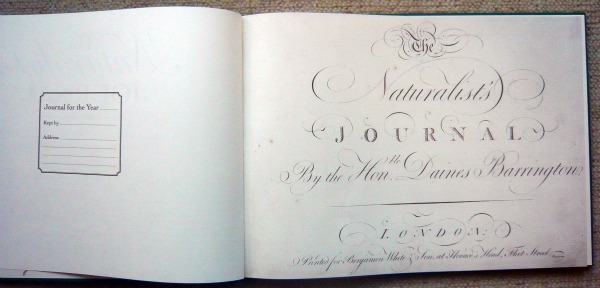 Journal for the Year
Kept by
Address
The
Naturalist's
JOURNAL
By the Hon.ble Daines Barrington
LONDON:
Printed for Benjamin White & Son, at Horace's Head, Fleet Street